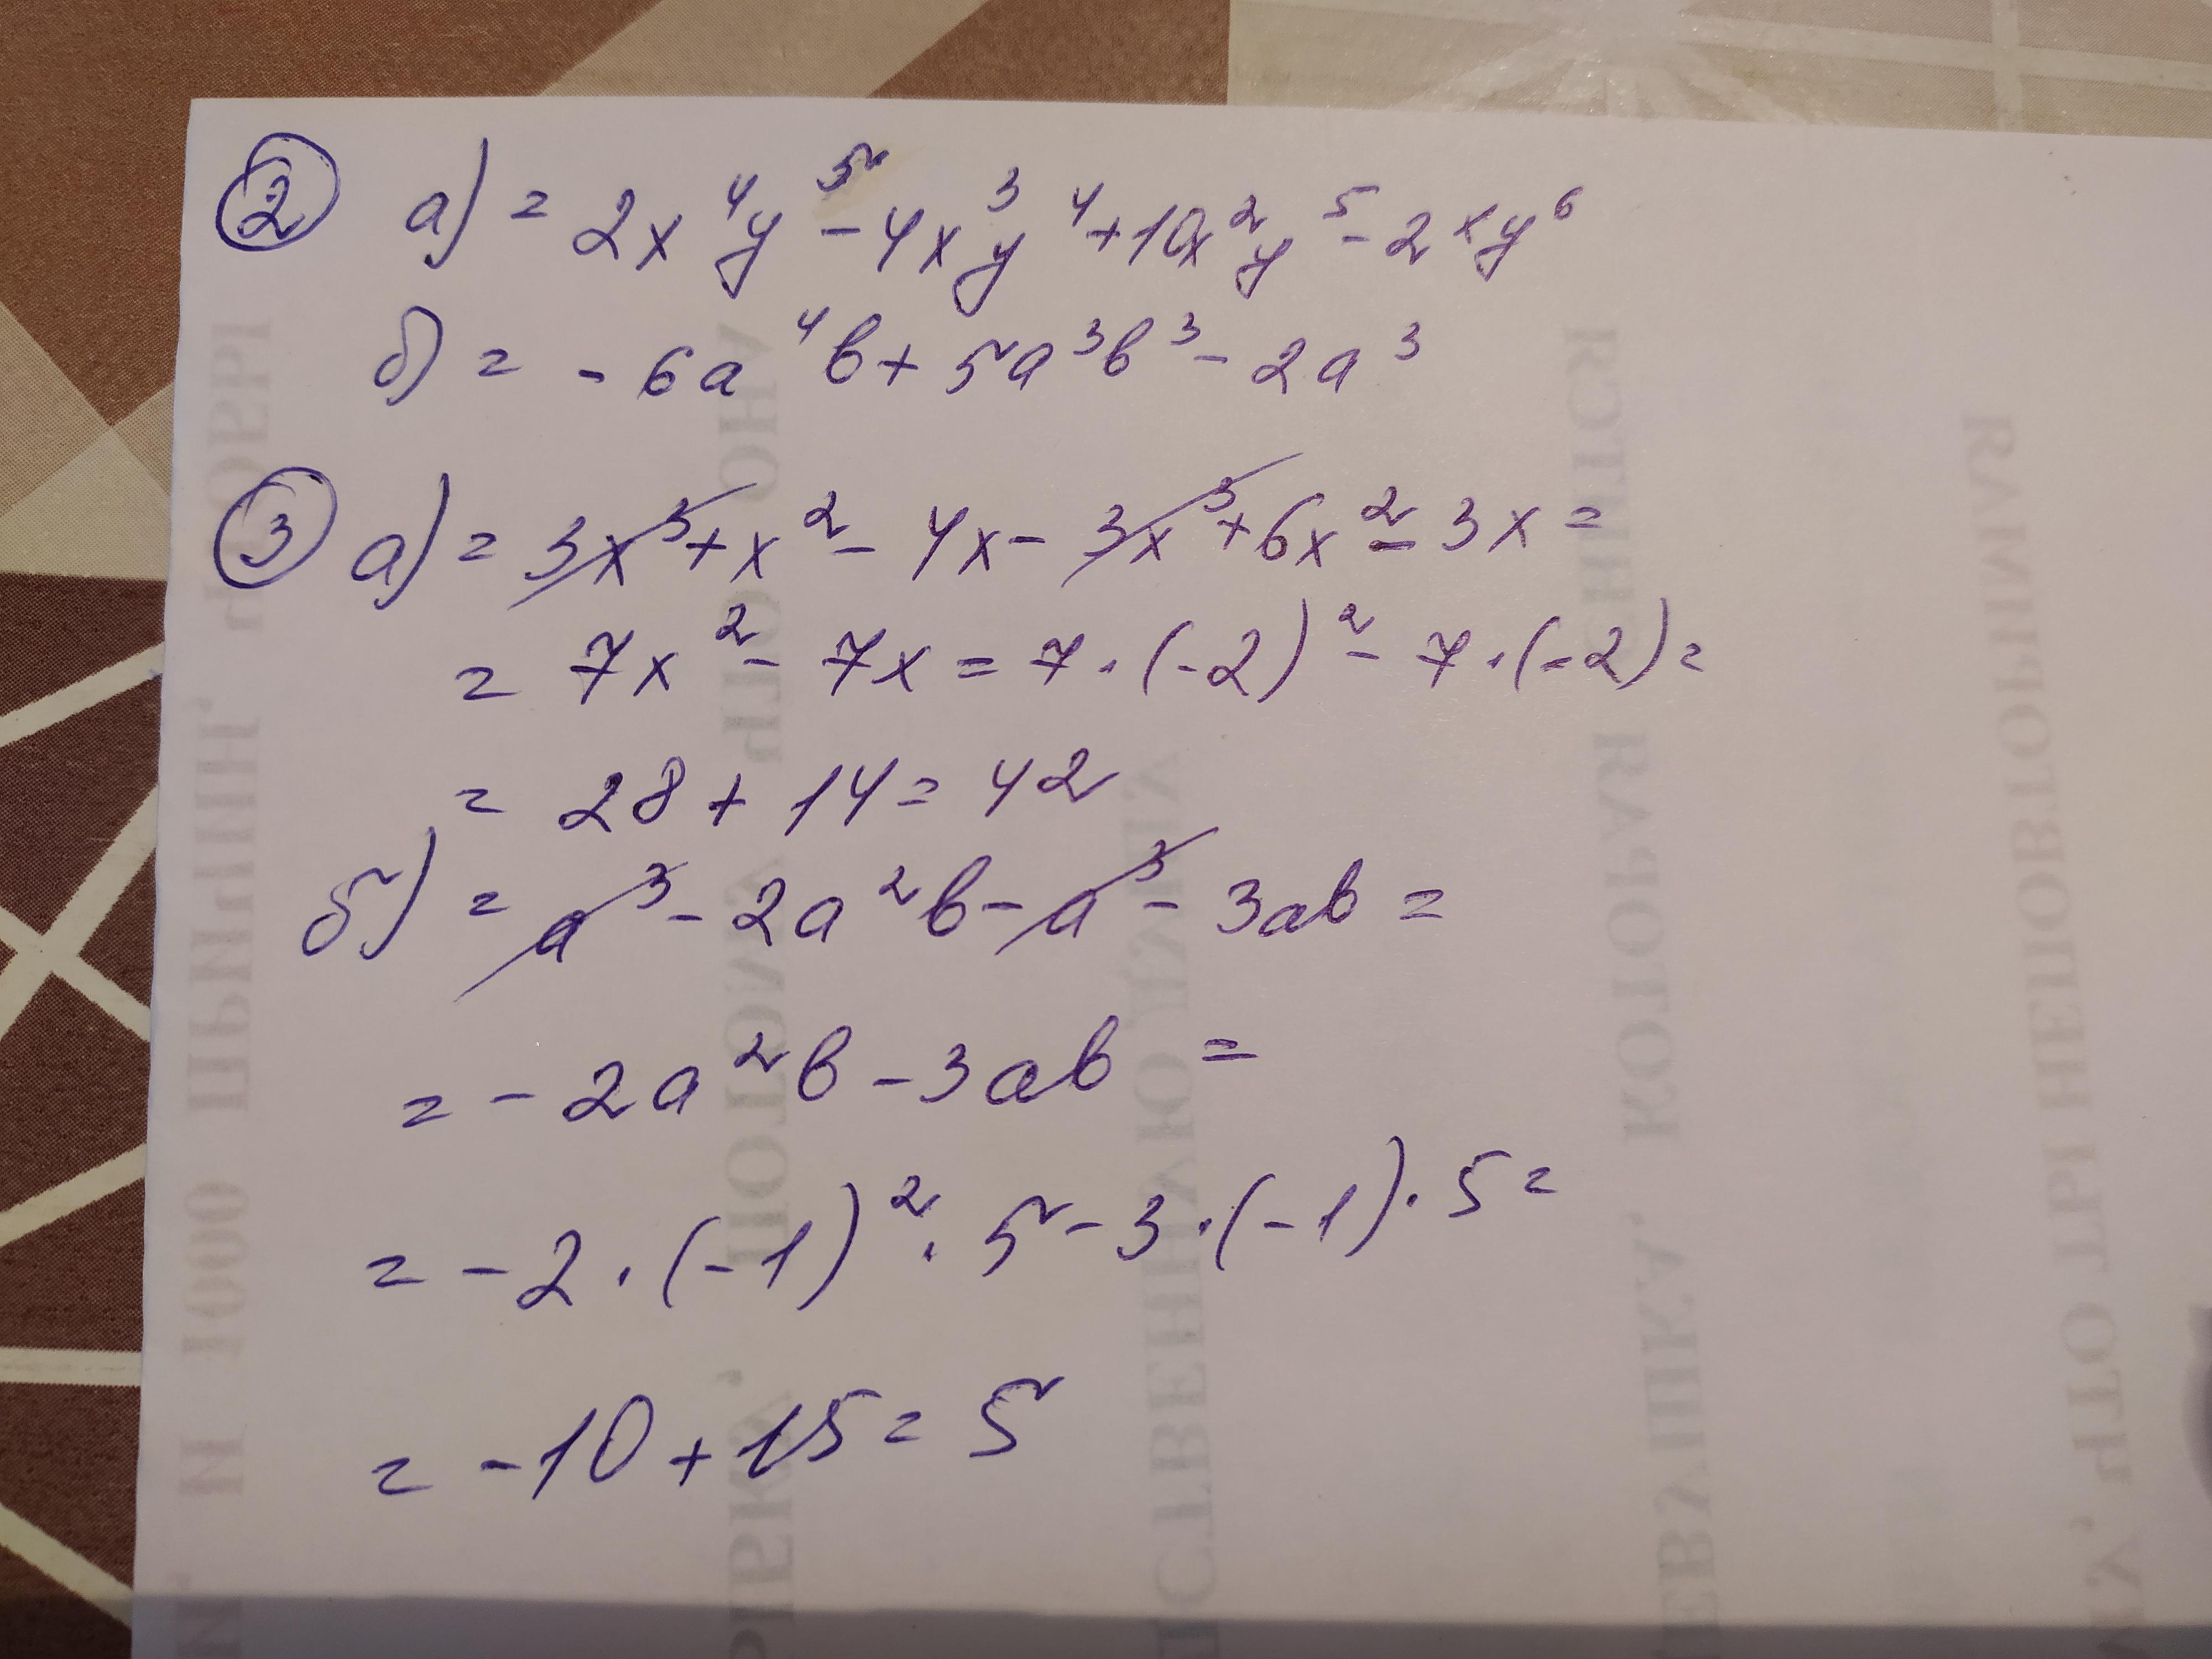 ② а) = 2x⁴y⁵ - 4xy³ ⁴ + 10x²y⁵ - 2xy⁶
б) = - 6a⁴b + 5a³b³ - 2a³
③ а) = 3x³ + x² - 4x - 3x³ + 6x² - 3x =
= 7x² - 7x = 7 · (-2)² - 7 · (-2) =
= 28 + 14 = 42
б) = a³ - 2a²b - a³ - 3ab =
= - 2a²b - 3ab =
= - 2 · (-1)² · 5 - 3 · (-1) · 5 =
= - 10 + 15 = 5